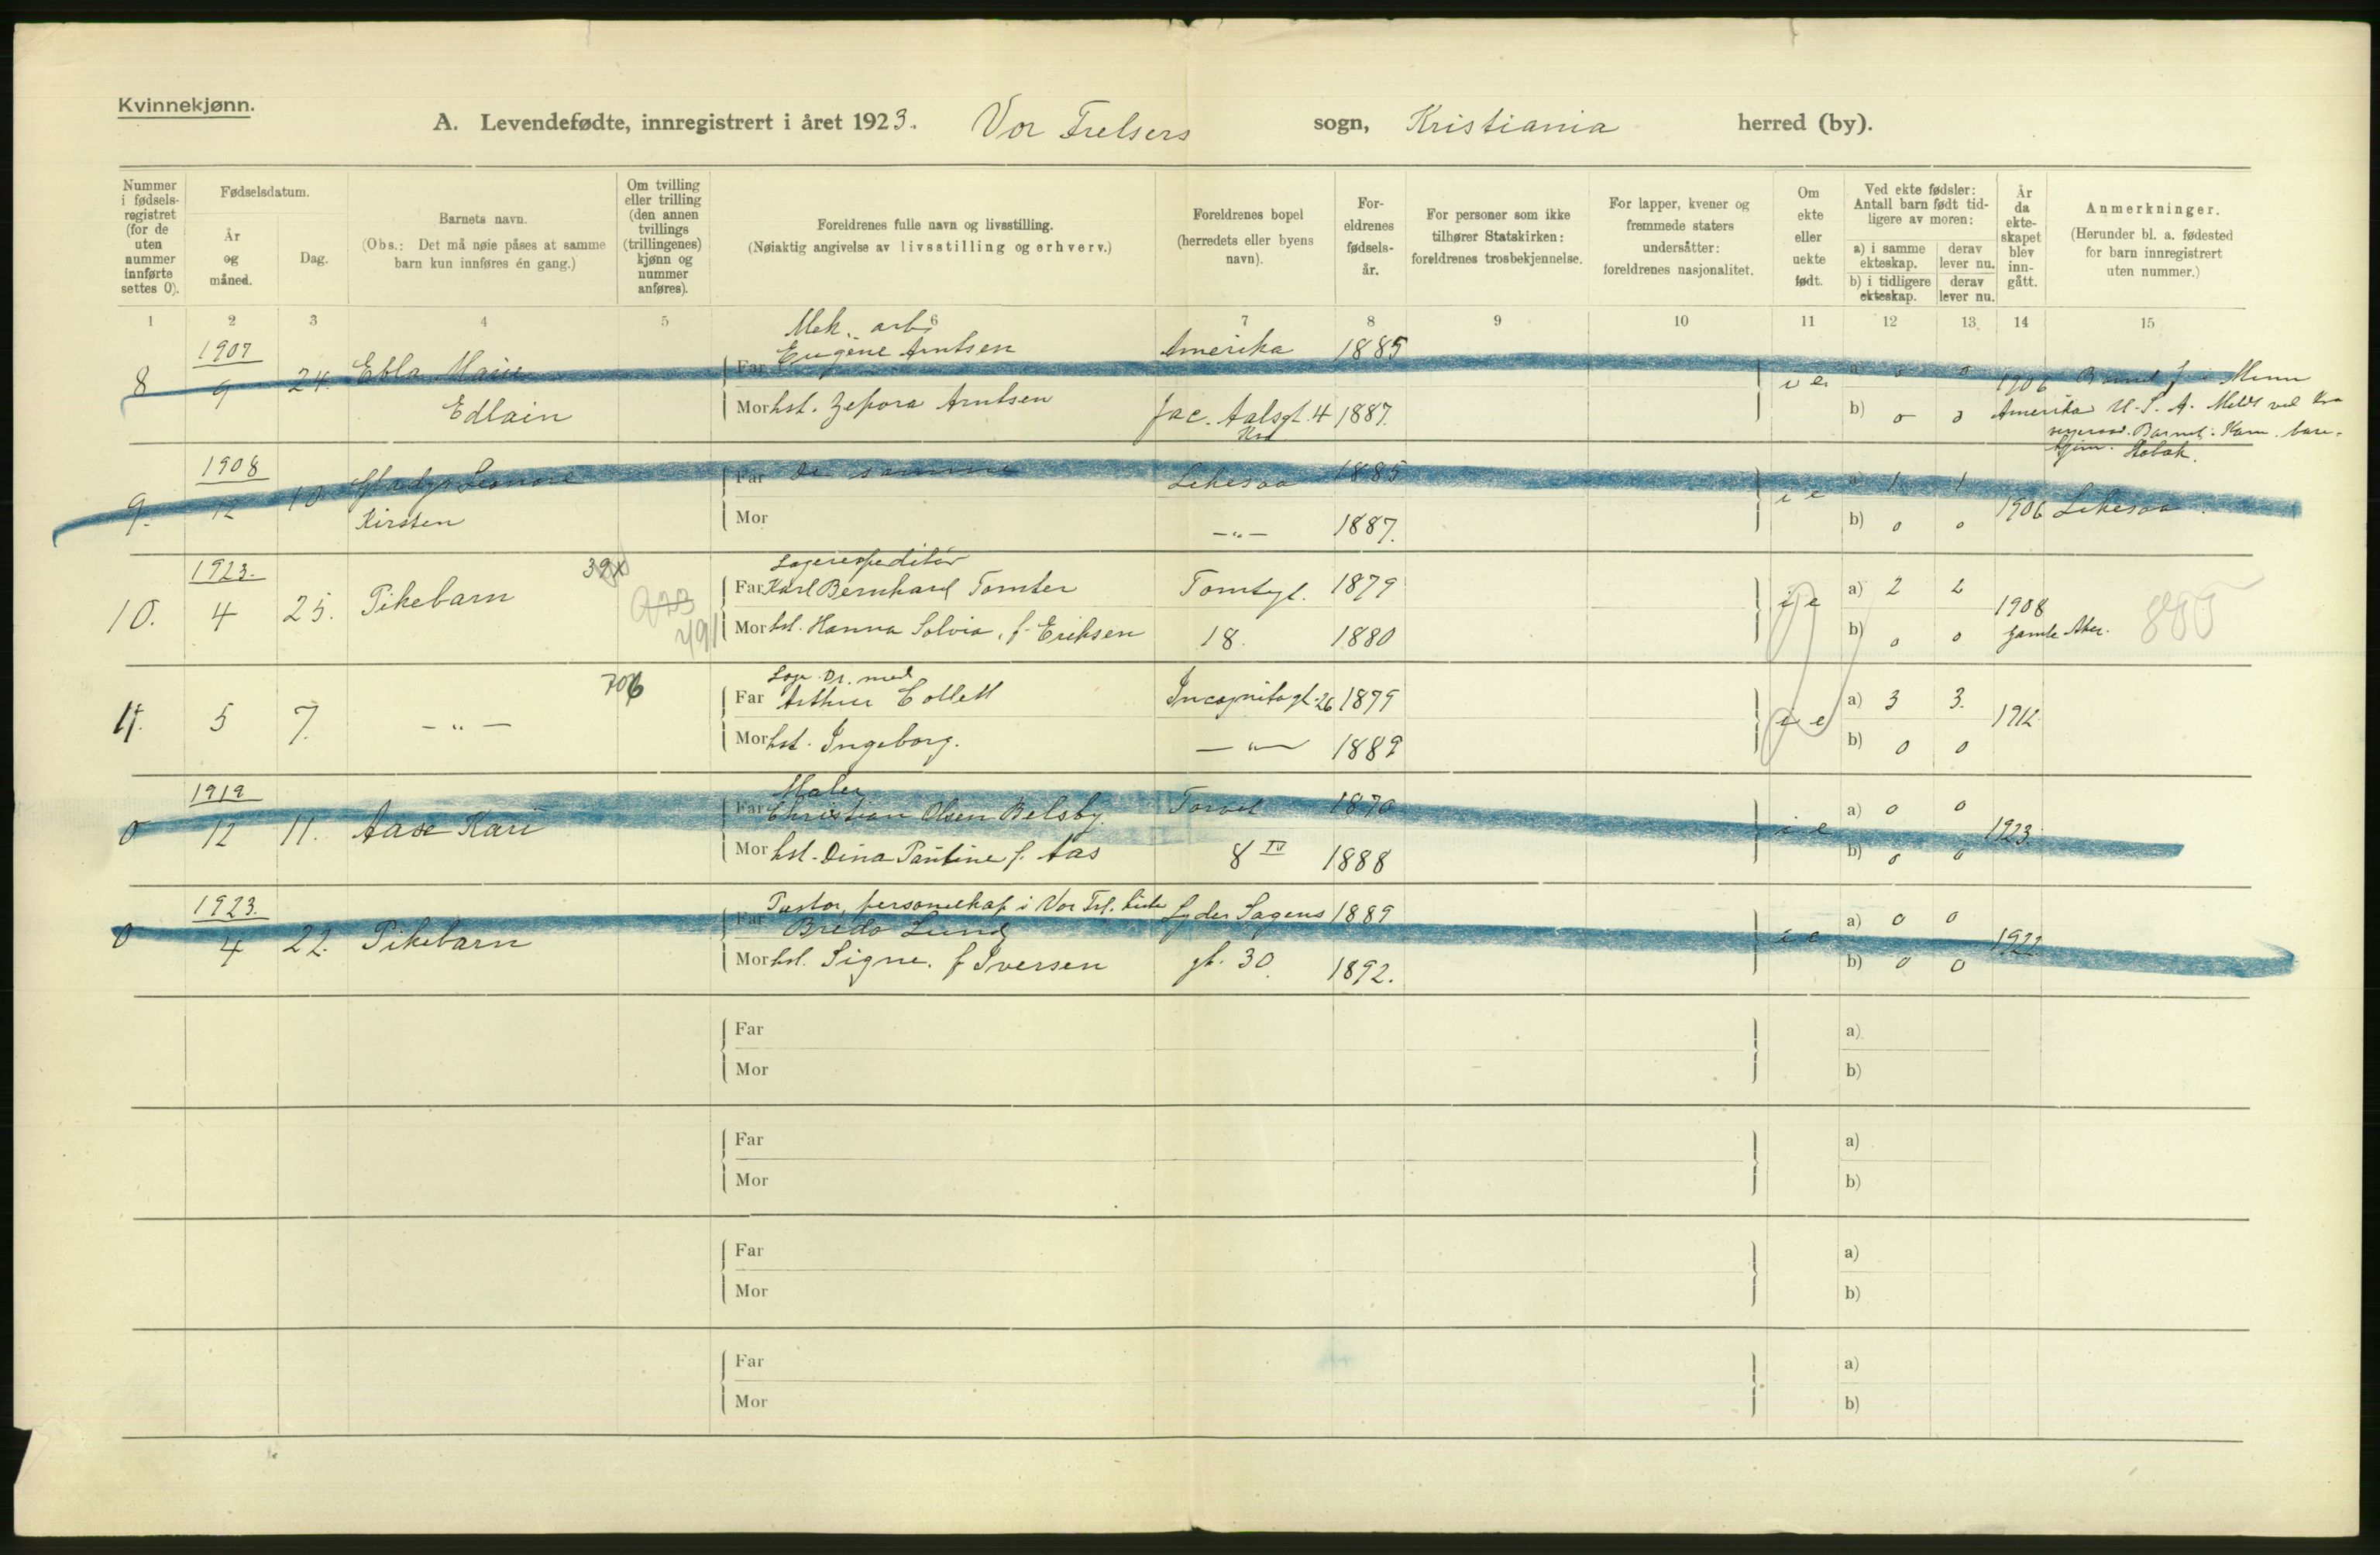 Kvinnekjønn.
A. Levendefødte, innregistrert i året 1923. Vor Frelsers sogn, Kristiania herred (by).
Nummer i fødsels-registret (for de uten nummer innførte settes 0).
Fødselsdatum.
År og måned.
Dag.
Barnets navn.
(Obs.: Det må nøie påses at samme barn kun innføres én gang.)
Om tvilling eller trilling (den annen tvillings (trillingenes) kjønn og nummer anføres).
Foreldrenes fulle navn og livsstilling.
(Nøiaktig angivelse av livsstilling og erhverv.)
Foreldrenes bopel (herredets eller byens navn).
For-eldrenes fødsels-år.
For personer som ikke tilhører Statskirken: foreldrenes trosbekjennelse.
For lapper, kvener og fremmede staters undersåtter: foreldrenes nasjonalitet.
Om ekte eller uekte født.
Ved ekte fødsler: Antall barn født tid-ligere av moren:
a) i samme ekteskap.
derav lever nu.
b) i tidligere ekteskap.
derav lever nu.
År da ekte-skapet blev inn-gått.
Anmerkninger.
(Herunder bl. a. fødested for barn innregistrert uten nummer.)
1 2 3 4 5 6 7 8 9 10 11 12 13 14 15
Mek. arb.
1907 Far Eugène Arntsen Amerika 1885
8 9 24. Ebla Marie i e. a) 0 0 1906 Minn
Edlain Mor hst. Zefora Arntsen Jac. Aalsgt. 4 1887. b) 0 0 Amerika U.S.A.
Barnet
hjem.
1908 Far De samme Lekesaa 1885 a) 1 1
9. 12 10 Gladys Leonore i e 1906 Lekesaa
Kirsten Mor —"— 1887. b) 0 0
1923. Lagerexpeditör
Far Karl Bernhard Tomter Tomtegt. 1879 a) 2 2
10. 4 25. Pikebarn i e 1908 880
491 Mor hst. Hanna Solvia, f. Eriksen 18. 1880 b) 0 0 Gamle Aker.
706 Dr. med
Far Arthur Collett Incognitogt. 26 1879 a) 3 3.
11. 5 7. —"— i e 1912
Mor hst. Ingeborg. —"— 1889 b) 0 0
1919 Maler
Far Christian Olsen Belsby. Torvet 1870 a) 0 0
0 12 11. Aase Kari i e 1923.
Mor hst. Dina Pauline f. Aas 8 IV 1888 b) 0 0
1923. Pastor, personelkap. i Vor Frl. kirke
Far Bredo Lund Lyder Sagens 1889 a) 0 0
0 4 22. Pikebarn i e 1922
Mor hst. Signe. f Iversen gt. 30. 1892. b) 0 0
Far a)
Mor b)
Far a)
Mor b)
Far a)
Mor b)
Far a)
Mor b)